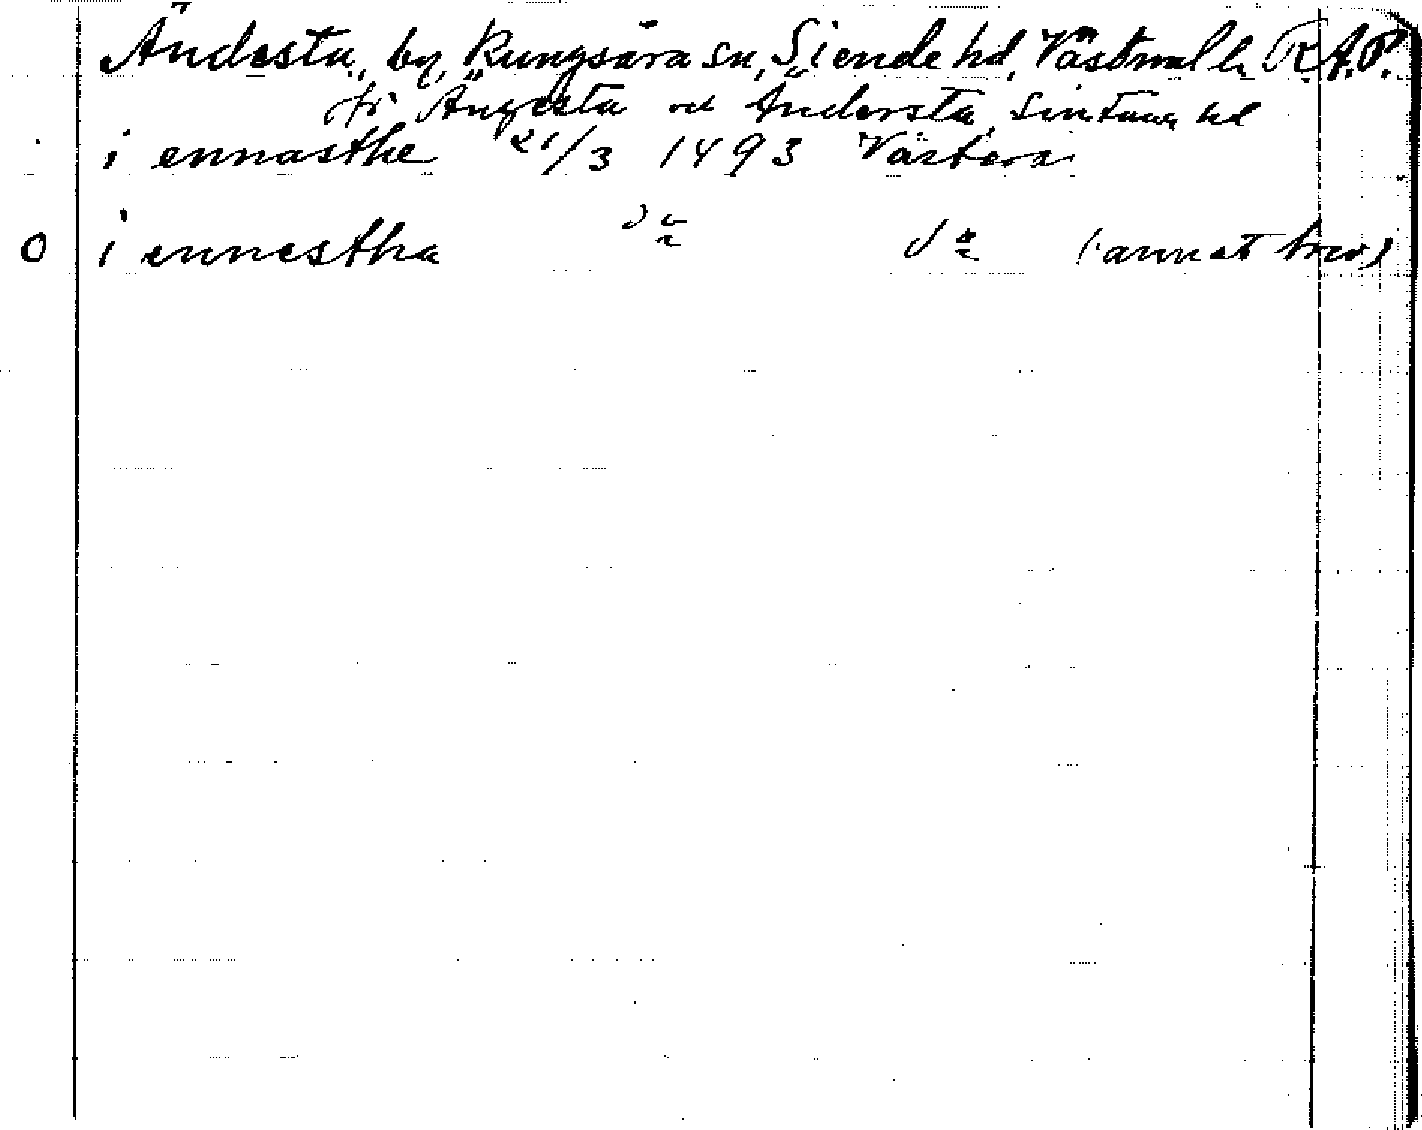 Ändesta, by, Kungsåra sn, Siende hd, Västmanl. l. R.A.P.
jfr Ängesta ochÄndersta, Simtuna hd
i ennasthe 21/3 1493 Västerås
0 i ennestha do do (annat brev)